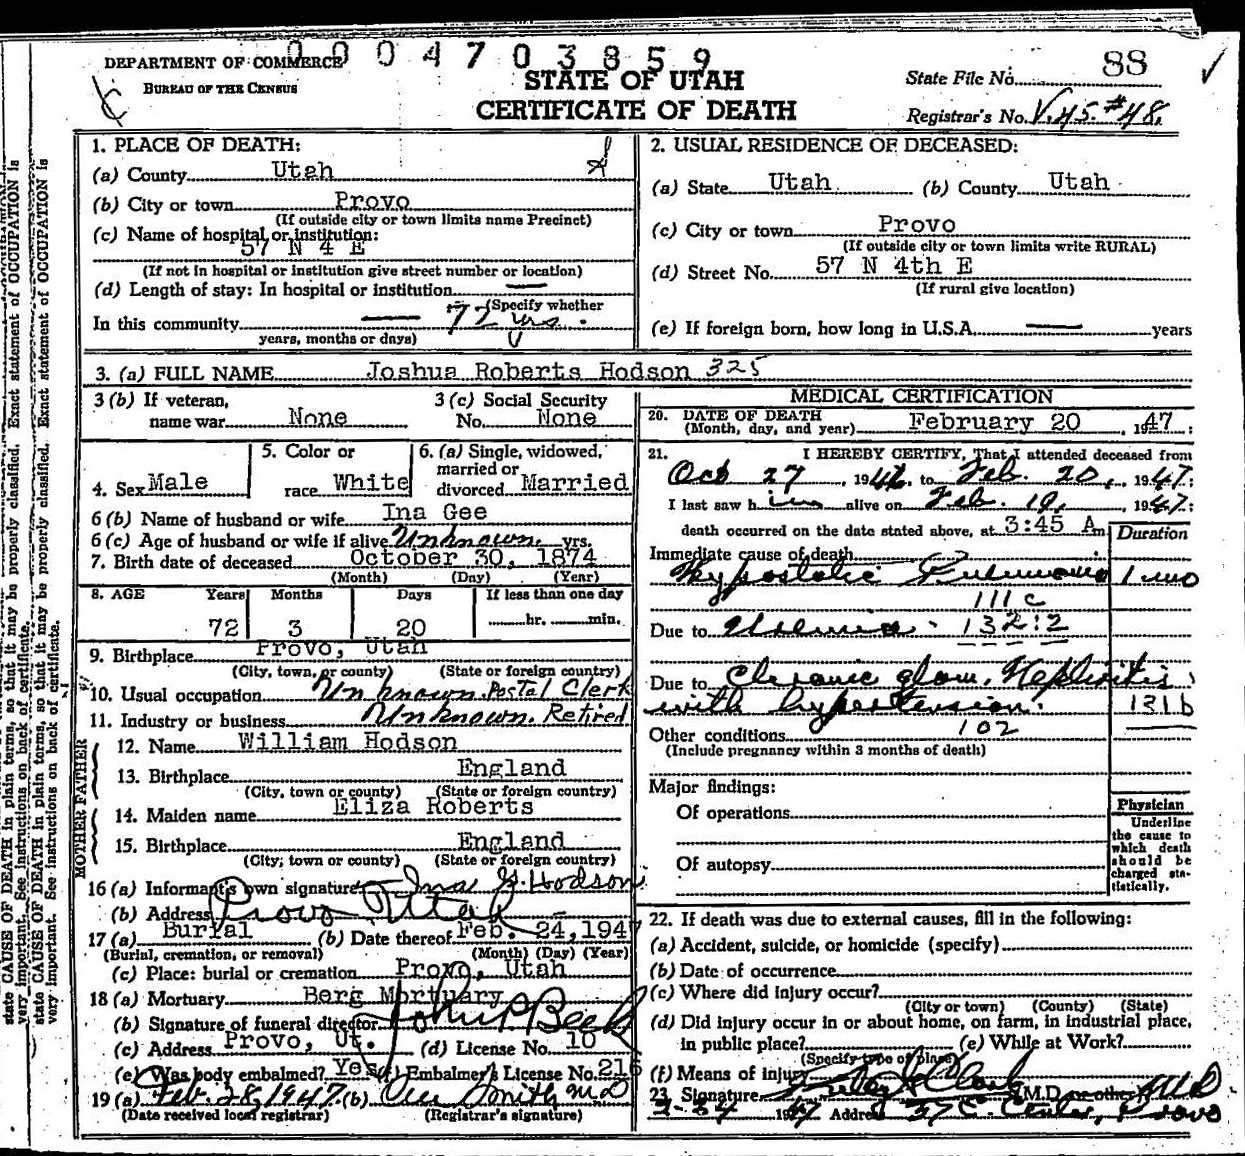 0004703859
DEPARTMENT OF COMMERCE
BUREAU OF THE CENSUS
STATE OF UTAH
CERTIFICATE OF DEATH
State File No. 88
Registrar's No. V.45.#48.
1. PLACE OF DEATH:
(a) County Utah
(b) City or town Provo
(If outside city or town limits name Precinct)
(c) Name of hospital or institution:
57 N 4 E
(If not in hospital or institution give street number or location)
(d) Length of stay: In hospital or institution —
(Specify whether
In this community — 72 yrs.
years, months or days)
2. USUAL RESIDENCE OF DECEASED:
(a) State Utah (b) County Utah
(c) City or town Provo
(If outside city or town limits write RURAL)
(d) Street No. 57 N 4th E
(If rural give location)
(e) If foreign born, how long in U.S.A. — years
3. (a) FULL NAME Joshua Roberts Hodson 325
3 (b) If veteran, name war None
3 (c) Social Security No. None
4. Sex Male
5. Color or race White
6. (a) Single, widowed, married or divorced Married
6 (b) Name of husband or wife Ina Gee
6 (c) Age of husband or wife if alive Unknown. yrs.
7. Birth date of deceased October 30, 1874
(Month) (Day) (Year)
8. AGE Years Months Days If less than one day
72 3 20 hr. min.
9. Birthplace Provo, Utah
(City, town, or county) (State or foreign country)
10. Usual occupation Unknown. Postal Clerk
11. Industry or business Unknown. Retired
FATHER
12. Name William Hodson
13. Birthplace England
(City, town or county) (State or foreign country)
MOTHER
14. Maiden name Eliza Roberts
15. Birthplace England
(City; town or county) (State or foreign country)
16 (a) Informant's own signature Ina G. Hodson
(b) Address Provo Utah
17 (a) Burial (b) Date thereof Feb. 24, 1947
(Burial, cremation, or removal) (Month) (Day) (Year)
(c) Place: burial or cremation Provo, Utah
18 (a) Mortuary Berg Mortuary
(b) Signature of funeral director John P Beck
(c) Address Provo, Ut. (d) License No. 10
(e) Was body embalmed? Yes (f) Embalmer's License No. 216
19 (a) Feb 28, 1947. (b) Smith M.D
(Date received local registrar) (Registrar's signature)
MEDICAL CERTIFICATION
20. DATE OF DEATH
(Month, day, and year) February 20, 1947:
21. I HEREBY CERTIFY, That I attended deceased from
Oct 27, 1946. to Feb. 20, 1947:
I last saw him alive on Feb. 19, 1947:
death occurred on the date stated above, at 3:45 A m
Duration
Immediate cause of death
Hypostatic Pneumonia 1 mo
111c
Due to Uremia 132:2
Due to Chronic glom. Nephritis
with hypertension. 131b
Other conditions 102
(Include pregnancy within 3 months of death)
Major findings:
Of operations
Of autopsy
Physician
Underline
the cause to
which death
should be
charged sta-
tistically.
22. If death was due to external causes, fill in the following:
(a) Accident, suicide, or homicide (specify)
(b) Date of occurrence
(c) Where did injury occur?
(City or town) (County) (State)
(d) Did injury occur in or about home, on farm, in industrial place,
in public place? (e) While at Work?
(Specify type of place)
(f) Means of injury
23. Signature Clark M.D. or other MD
2-24 1947 Address 37 E. Center, Provo
state CAUSE OF DEATH in plain terms, so that it may be properly classified. Exact statement of OCCUPATION is
very important. See instructions on back of certificate.
state CAUSE OF DEATH in plain terms, so that it may be properly classified. Exact statement of OCCUPATION is
very important. See instructions on back of certificate.